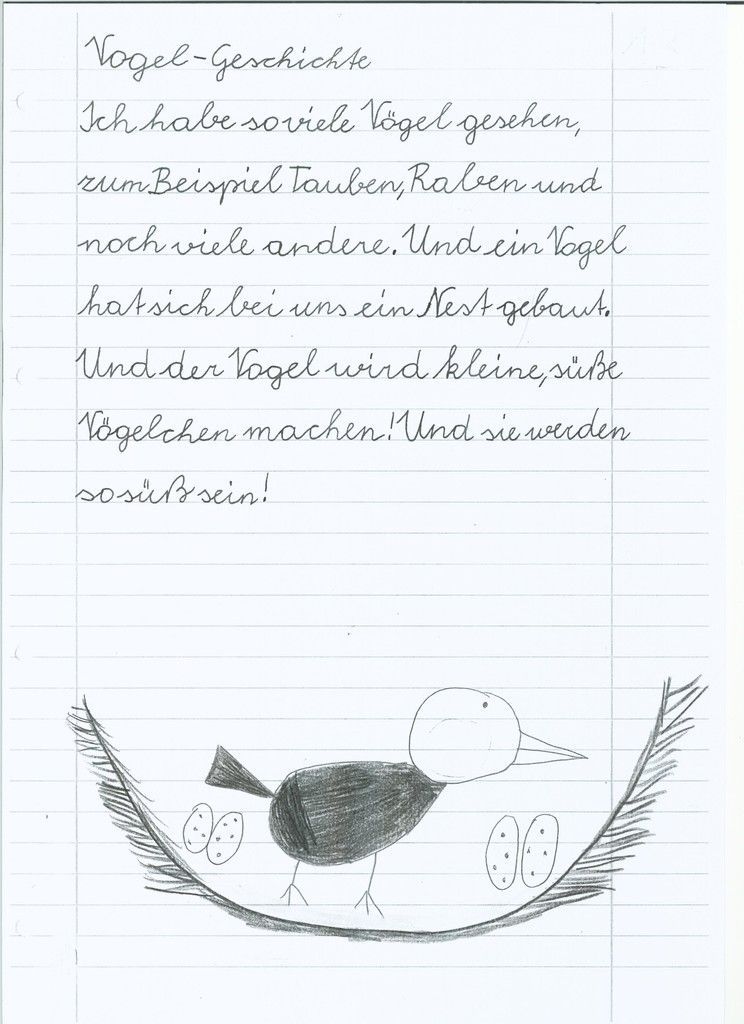 Vogel-Geschichte
Ich habe soviele Vögel gesehen,
zum Beispiel Tauben, Raben und
noch viele andere. Und ein Vogel
hat sich bei uns ein Nest gebaut.
Und der Vogel wird kleine, süße
Vögelchen machen! Und sie werden
so süß sein!